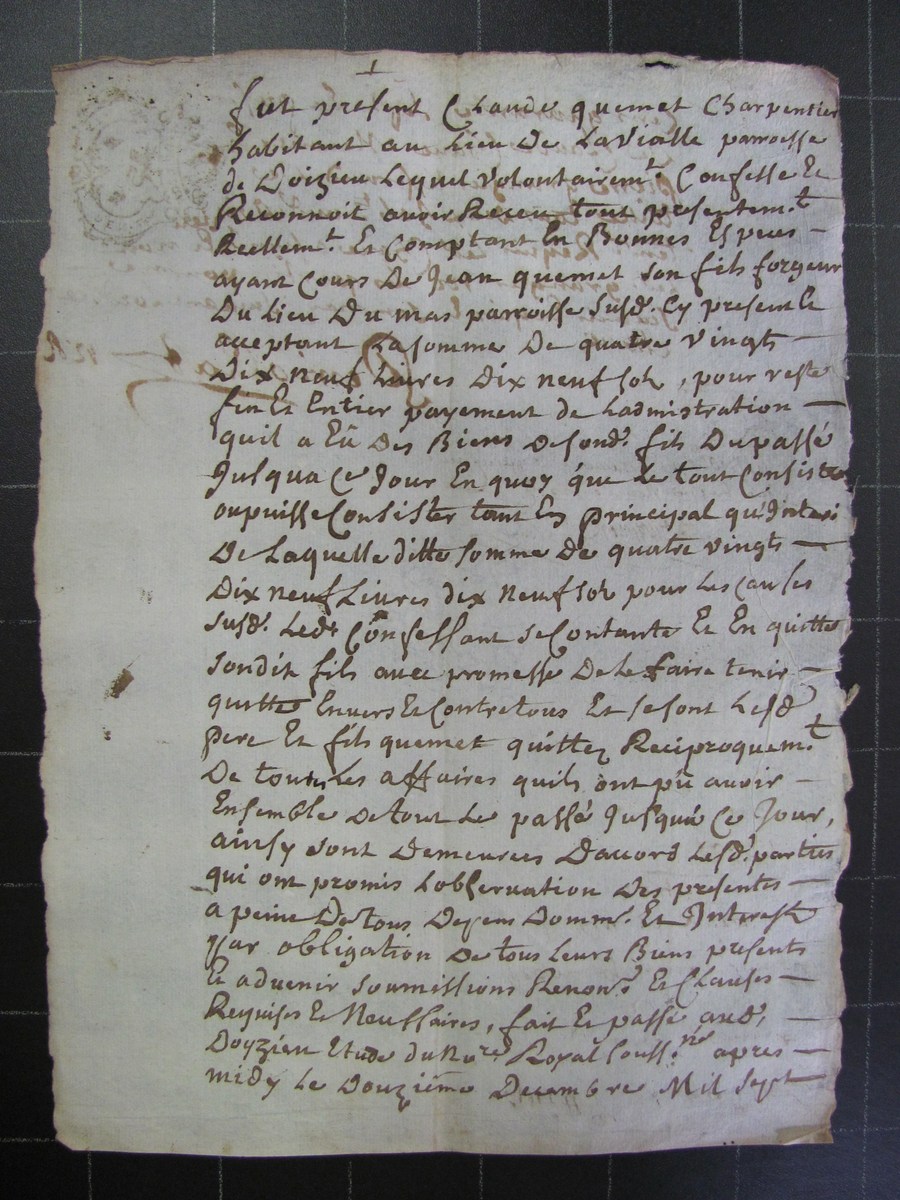 fut present Claude quemet Charpentier
habitant au Lieu De LaVialle parroesse
de Doizieu Lequel Volontairemt. Confesse Et
Reconnoit avoir Receu tout presentemt.
Reellemt. Et Comptant En Bonnes Especes
ayant Cours De Jean quemet son fils forgeur
Du Lieu Du mas parroisse susd. Cy present Et
acceptant La somme De quatre vingts
Dix neuf Livres Dix neuf sols, pour reste
fin Et Entier payement de Ladmistration
quil a Eû Des Biens De sond. fils Du passé
Jusqua Ce Jour En quoy que Le tout Consiste
ou puisse Consister tant En principal qu'Interi
De Laquelle ditte somme De quatre vingts
Dix neuf Livres dix neuf sols pour Les causes
susd. Led. Confessant se Contante Et En quitte
sondit fils avec promesse De Le faire tenir
quitte Envers Et Contre tous Et se sont Lesd
pere Et fils quemet quittez Reciproquemt.
De toutes Les affaires quils ont pû avoir
Ensemble De tout Le passé Jusquà Ce Jour,
ainsy sont Demeurées Daccord Lesd. parties
qui ont promis Lobservation Des presentes
a peine De tous Depens Domm. Et Interest
par obligation De tous Leurs Biens presents
Et advenir soumissions Renon. Et Clauses
Requises Et Necessaires, fait Et passé aud.
Doyzieu Etude du Nore. Royal souss.né apres
midy Le Douziéme Decembre Mil sept